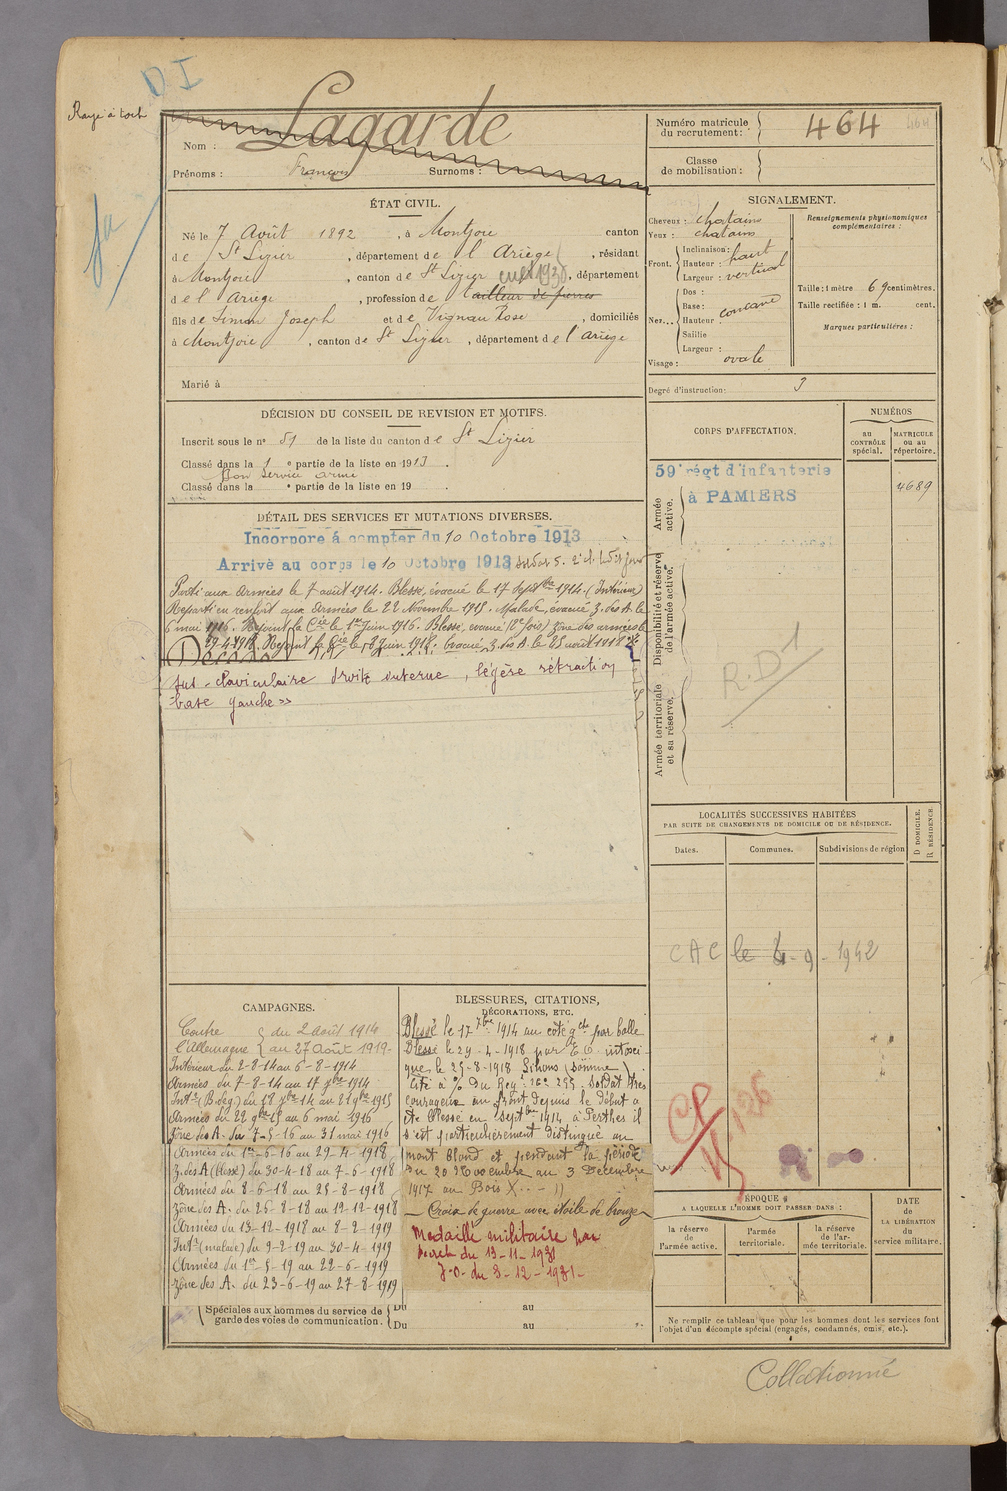 D.I
Rayé à tort
Nom : Lagarde
Prénoms : François Surnoms :
Numéro matricule du recrutement : 464
464
Classe de mobilisation :
ÉTAT CIVIL.
Né le 7 Août 1892, à Montjoie canton
de St Lizier, département de l'Ariège, résidant
à Montjoie, canton de St Lizier, département
de l'Ariège, profession de tailleur de pierres
fils de Simon Joseph et de Vignau Rose, domiciliés
à Montjoie, canton de St Lizier, département de l'Ariège
Marié à
SIGNALEMENT.
Cheveux : chatains
Yeux : chatains
Front. Inclinaison : haut
Hauteur :
Largeur : vertical
Nez... Dos :
Base : concave
Hauteur :
Saillie
Largeur :
Visage : ovale
Renseignements physionomiques complémentaires :
Taille : 1 mètre 69 centimètres.
Taille rectifiée : 1 m. cent.
Marques particulières :
Degré d'instruction : 3
DÉCISION DU CONSEIL DE REVISION ET MOTIFS.
Inscrit sous le no 51 de la liste du canton de St Lizier
Classé dans la 1 e partie de la liste en 1913.
Bon service armé
Classé dans la e partie de la liste en 19 .
CORPS D'AFFECTATION.
NUMÉROS
au CONTRÔLE spécial.
MATRICULE ou au répertoire.
59e régt d'infanterie
à PAMIERS
4689
Armée active.
Disponibilité et réserve de l'armée active.
Armée territoriale et sa réserve.
R.D 1
DÉTAIL DES SERVICES ET MUTATIONS DIVERSES.
Incorporé à compter du 10 Octobre 1913
Arrivé au corps le 10 Octobre 1913 soldat de 2e cl. ledit jour
Parti aux armées le 7 août 1914. Blessé, évacué le 17 septbre 1914. (Intérieur)
Reparti en renfort aux armées le 22 Novembre 1915. Malade, évacué Z. des A. le
6 mai 1916. Rejoint la Cie le 1er Juin 1916. Blessé, évacué (2e fois) Zone des armées le
29-4-1918. Rejoint la Cie le 8 Juin 1918. évacué Z. des A. le 25 août 1918
sus-claviculaire droite interne, légère rétraction
base gauche »
LOCALITÉS SUCCESSIVES HABITÉES
PAR SUITE DE CHANGEMENTS DE DOMICILE OU DE RÉSIDENCE.
Dates. Communes. Subdivisions de région
D DOMICILE.
R RÉSIDENCE
CAC le 4-9-1942
CAMPAGNES.
Contre l'Allemagne du 2 août 1914
au 27 Août 1919
Intérieur du 2-8-14 au 6-8-1914
Armées du 7-8-14 au 17 7bre 1914
Intr (B. de g.) du 18 7bre 14 au 21 9bre 1915
Armées du 22 9bre 15 au 6 mai 1916
Zone des A. du 7-5-16 au 31 mai 1916
Armées du 1er-6-16 au 29-4-1918
Z. des A (blessé) du 30-4-18 au 7-6-1918
Armées du 8-6-18 au 25-8-1918
Zone des A. du 26-8-18 au 12-12-1918
Armées du 13-12-1918 au 8-2-1919
Intr (malade) du 9-2-19 au 30-4-1919
Armées du 1er-5-19 au 22-6-1919
Zone des A. du 23-6-19 au 27-8-1919
Spéciales aux hommes du service de garde des voies de communication.
Du au
Du au
BLESSURES, CITATIONS, DÉCORATIONS, ETC.
Blessé le 17 7bre 1914 au côté gche par balle
Blessé le 29-4-1918 par E.O. intoxi-
qué le 25-8-1918 (Somme).
Cité à l'O. du Régt no 255. Soldat très
courageux au front depuis le début a
été blessé en Septbre 1914 à Perthes il
s'est particulièrement distingué au
mont Blond et pendant la période
du 20 Novembre au 3 Décembre
1917 au Bois X
Croix de guerre avec étoile de bronze
Médaille militaire par
décret du 13-11-1931
J.O. du 3-12-1931
ÉPOQUE
A LAQUELLE L'HOMME DOIT PASSER DANS :
la réserve de l'armée active.
l'armée territoriale.
la réserve de l'armée territoriale.
DATE de LA LIBÉRATION du service militaire.
Ne remplir ce tableau que pour les hommes dont les services font
l'objet d'un décompte spécial (engagés, condamnés, omis, etc.).
Collationné